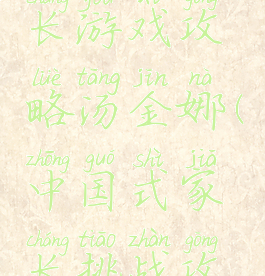 zhǎng yóu xì gōng
长游戏攻
lüè tāng jīn nà
略汤金娜(
zhōng guó shì jiā
中国式家
cháng tiāo zhàn gōng
长挑战攻